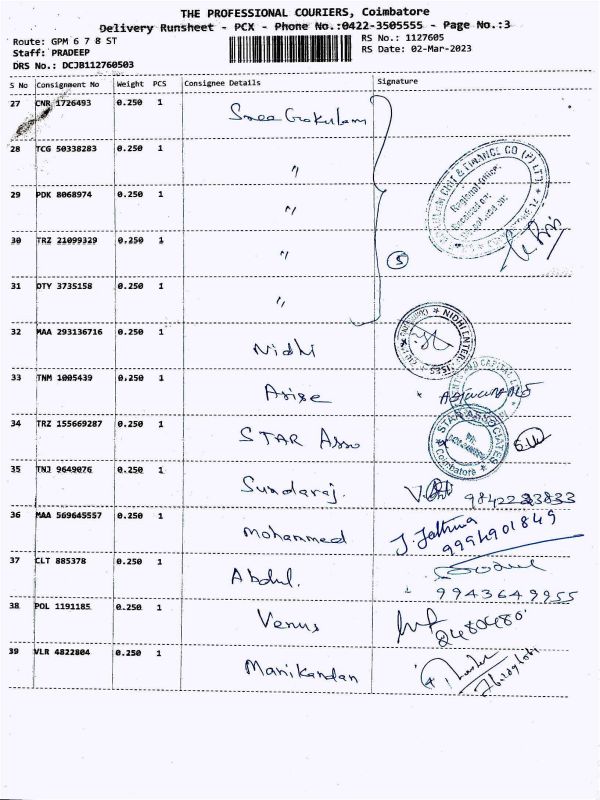 THE PROFESSIONAL COURIERS, Coimbatore
Delivery Runsheet - PCX - Phone No.:0422-3505555 - Page No.:3
Route: GPM 6 7 8 ST
RS No.: 1127605
Staff: PRADEEP
RS Date: 02-Mar-2023
DRS No.: DCJB112760503
S No Consignment No Weight PCS Consignee Details Signature
27 CNR 1726493 0.250 1 Sree Gokulam
28 TCG 50338283 0.250 1 "
29 PDK 8068974 0.250 1 "
30 TRZ 21099329 0.250 1 "
5
31 DTY 3735158 0.250 1 "
32 MAA 293136716 0.250 1 Nidhi
33 TNM 1005439 0.250 1 Arise
34 TRZ 155669287 0.250 1 STAR Asso
STAR ASSOCIATES
Coimbatore
35 TNJ 9649076 0.250 1 Sundaraj.
36 MAA 569645557 0.250 1 Mohammed
9994901849
37 CLT 885378 0.250 1 Abdul.
9943649955
38 POL 1191185 0.250 1 Venus
39 VLR 4822804 0.250 1 Manikandan